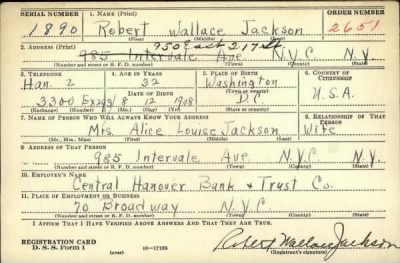 SERIAL NUMBER 1. NAME (Print) ORDER NUMBER
1890 Robert Wallace Jackson 2651
(First) (Middle) (Last)
2. ADDRESS (Print) 950 East 217 St
985 Intervale Ave N.Y.C N.Y.
(Number and street or R. F. D. number) (Town) (County) (State)
3. TELEPHONE 4. AGE IN YEARS 5. PLACE OF BIRTH 6. COUNTRY OF CITIZENSHIP
Han. 2 32 Washington
DATE OF BIRTH (Town or county)
3300 8 12 1908 D.C. U.S.A.
(Exchange) (Number) (Mo.) (Day) (Yr.) (State or country)
7. NAME OF PERSON WHO WILL ALWAYS KNOW YOUR ADDRESS 8. RELATIONSHIP OF THAT PERSON
Mrs. Alice Louise Jackson Wife
(Mr., Mrs., Miss) (First) (Middle) (Last)
9. ADDRESS OF THAT PERSON
985 Intervale Ave N.Y.C N.Y.
(Number and street or R. F. D. number) (Town) (County) (State)
10. EMPLOYER'S NAME
Central Hanover Bank & Trust Co.
11. PLACE OF EMPLOYMENT OR BUSINESS
70 Broadway N.Y.C
(Number and street or R. F. D. number) (Town) (County) (State)
I AFFIRM THAT I HAVE VERIFIED ABOVE ANSWERS AND THAT THEY ARE TRUE.
REGISTRATION CARD
D. S. S. Form 1 (over) 16—17105 Robert Wallace Jackson
(Registrant's signature)